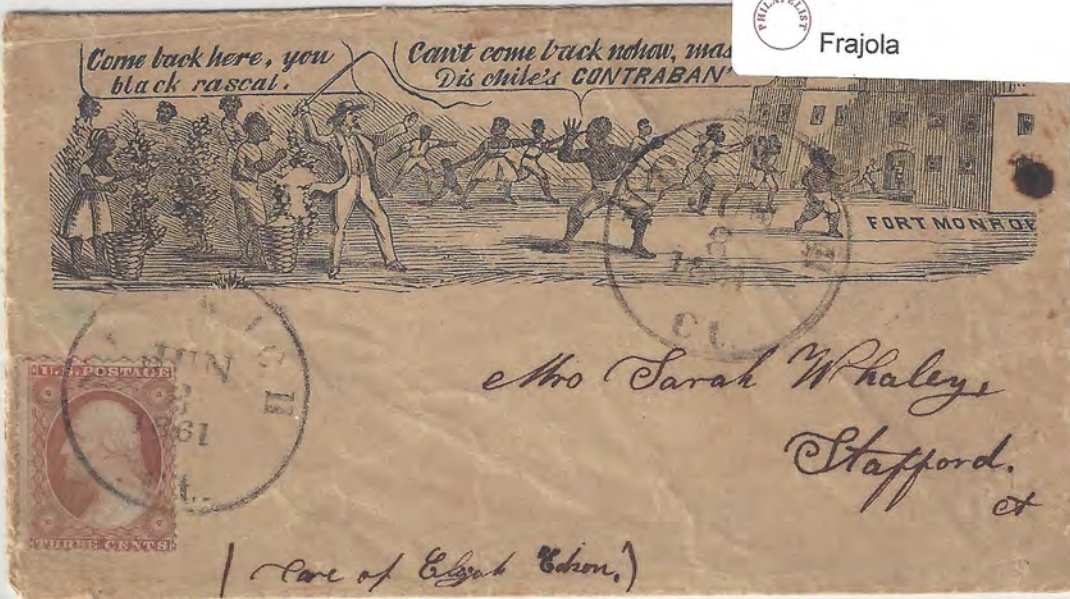 PHILATELIST
Frajola
Come back here, you
black rascal.
Can't come back nohow, mas
Dis chile's CONTRABAN'
FORT MONROE
8
CT.
WICH
JUN
1861
U.S. POSTAGE
THREE CENTS
Mrs Sarah Whaley,
Stafford.
ct
(Care of Elijah Edson.)